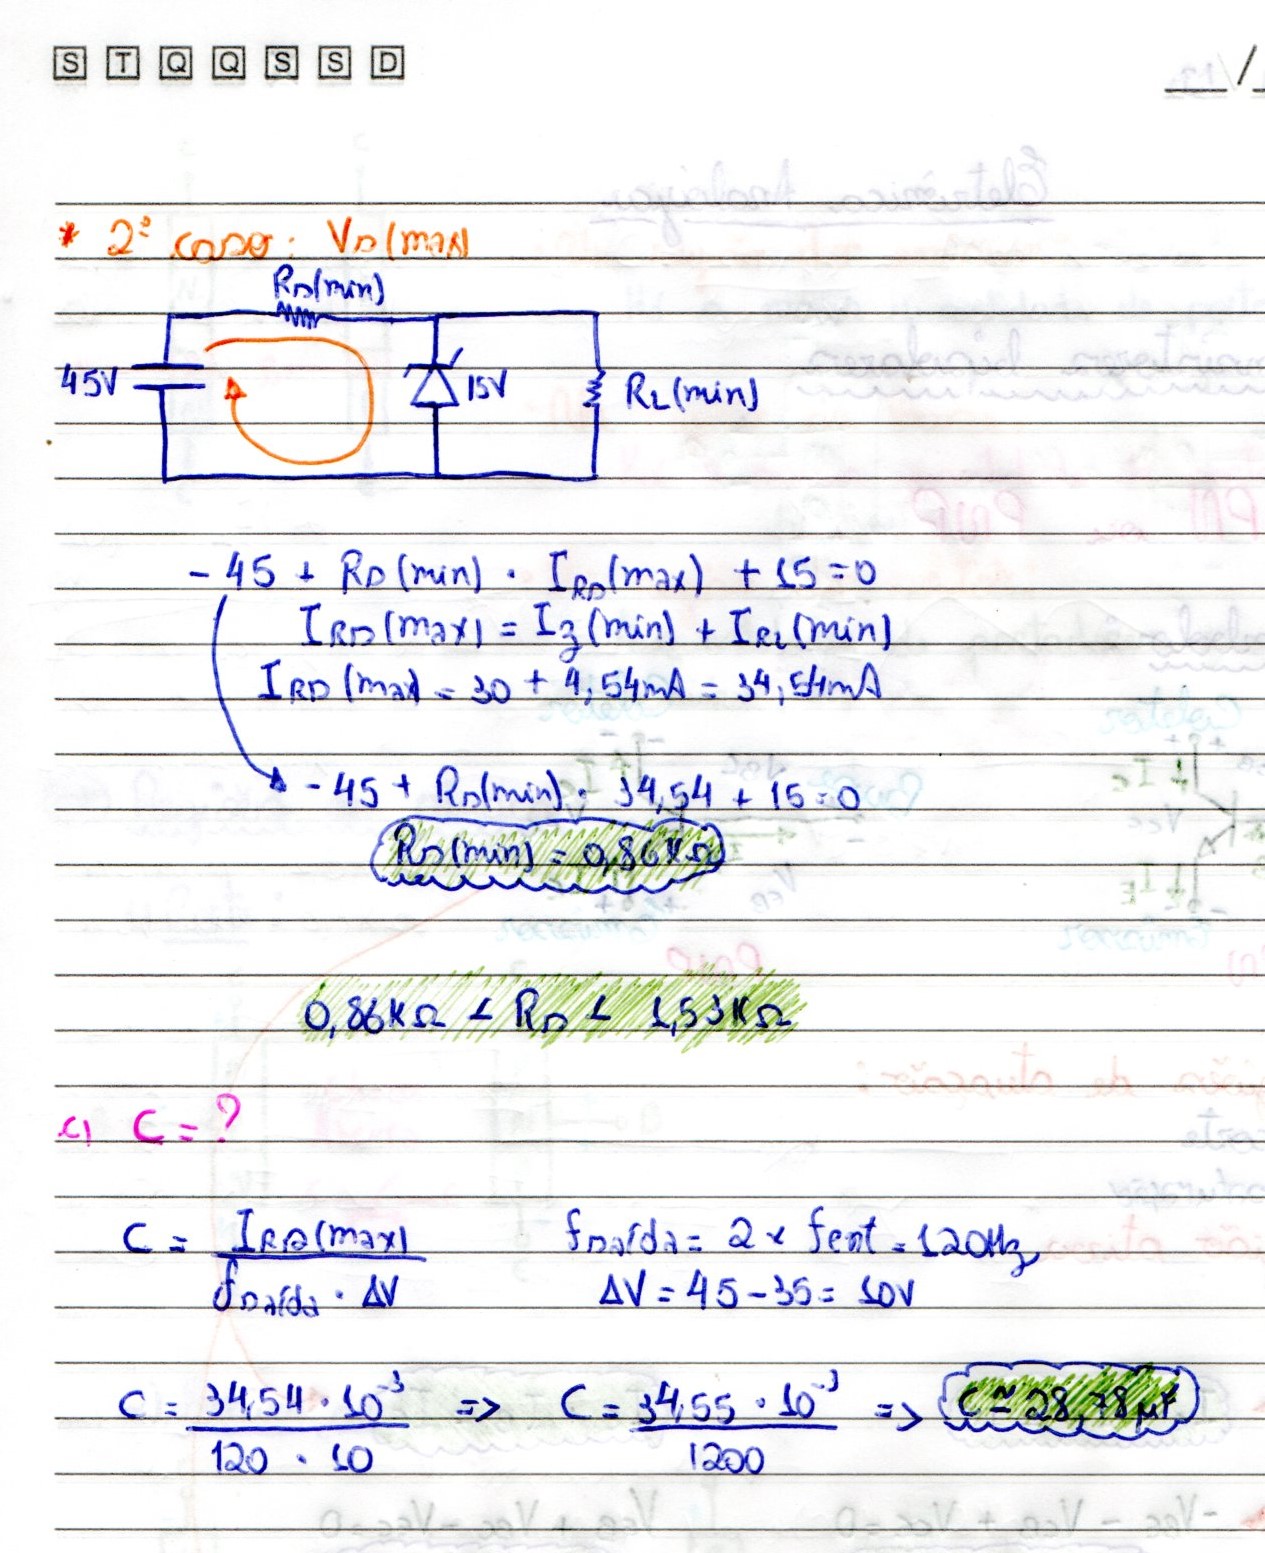 S T Q Q S S D
__/__
* 2º caso: VD(max)
RD(min)
45V
15V
RL(min)
- 45 + RD(min) · IRD(max) + 15 = 0
IRD(max) = Iz(min) + IRL(min)
IRD(max) = 30 + 4,54mA = 34,54mA
- 45 + RD(min) · 34,54 + 15 = 0
RD(min) = 0,86KΩ
0,86KΩ < RD < 1,53KΩ
c) C = ?
C = IRD(max) / fsaída · ΔV
fsaída = 2 x fent = 120Hz
ΔV = 45 - 35 = 10V
C = 34,54 · 10⁻³ / 120 · 10 => C = 34,55 · 10⁻³ / 1200 => C ≅ 28,78μF